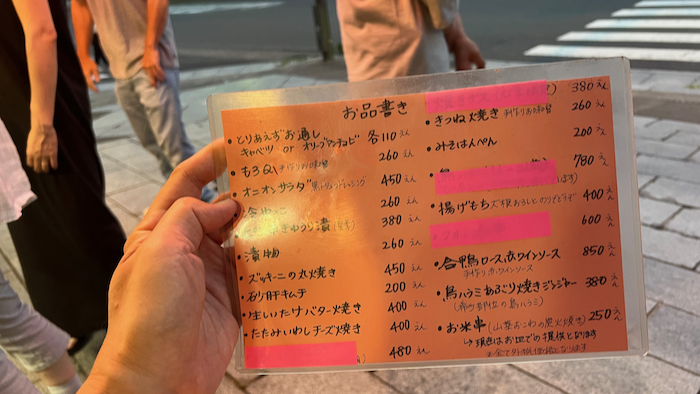 お品書き
・とりあえずお通し
キャベツ or オリーブアンチョビ 各110えん
・もろQ 手作りお味噌 260えん
・オニオンサラダ 黒トリュフドレッシング 450えん
260えん
きゅうり漬 380えん
・漬物 260えん
・ズッキーニの丸焼き 450えん
・砂肝キムチ 200えん
・生しいたけバター焼き 400えん
・たたみいわしチーズ焼き 400えん
480えん
380えん
・きつね焼き 手作りお味噌 260えん
・みそはんぺん 200えん
780えん
・揚げもち 大根おろしとのりとどうぞ 400えん
600えん
・合鴨ロース 赤ワインソース 850えん
手作り赤ワインソース
・鳥ハラミあぶり焼きジンジャー 380えん
(希少部位の鳥ハラミ)
・お米串 (山菜おこわの炭火焼き) 250えん
→現在はお皿での提供となります